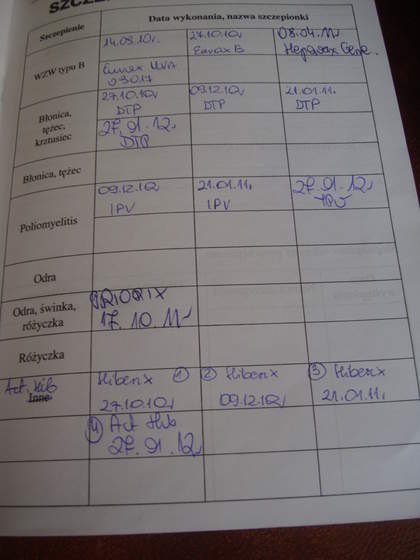 Szczepienie
Data wykonania, nazwa szczepionki
WZW typu B
14.08.10r. 27.10.10r 08.04.11r
Euvax B
27.10.10r 09.12.10r 21.01.11r.
DTP DTP DTP
Błonica,
tężec,
krztusiec
27.01.12r
DTP
Błonica, tężec
Poliomyelitis
09.12.10r 21.01.11r. 27.01.12r
IPV IPV IPV
Odra
Odra, świnka,
różyczka
PRIORIX
17.10.11r
Różyczka
Act Hib
Inne
Hiberix ① ② Hiberix ③ Hiberix
27.10.10r 09.12.10r 21.01.11r.
④ Act Hib
27.01.12r